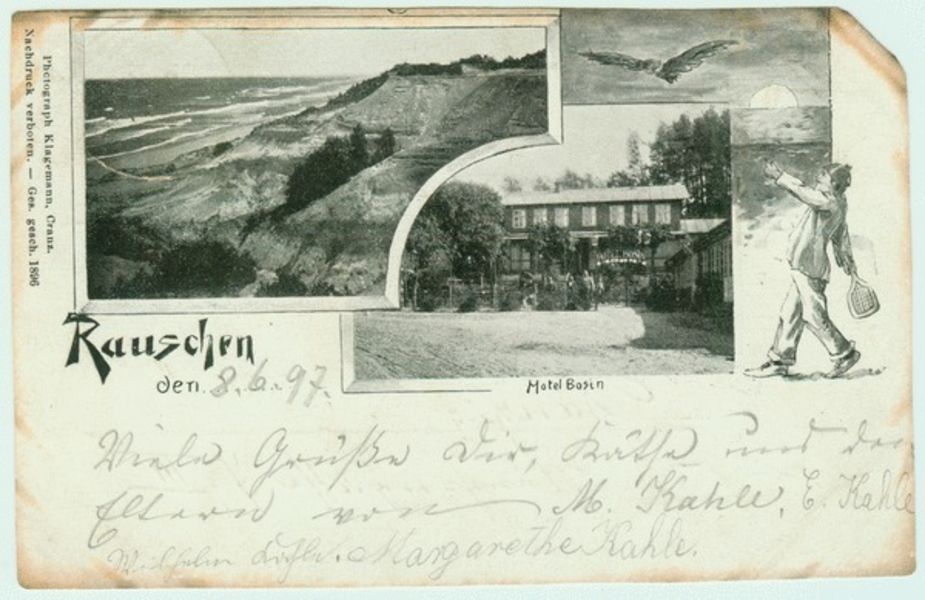 Photograph Klagemann, Cranz.
Nachdruck verboten. — Ges. gesch. 1896
Rauschen
den 8.6.97.
Hotel Bosin
Viele Grüße Dir, Käthe und den
Eltern von M. Kahle, E. Kahle
Wilhelm Kahle. Margarethe Kahle.